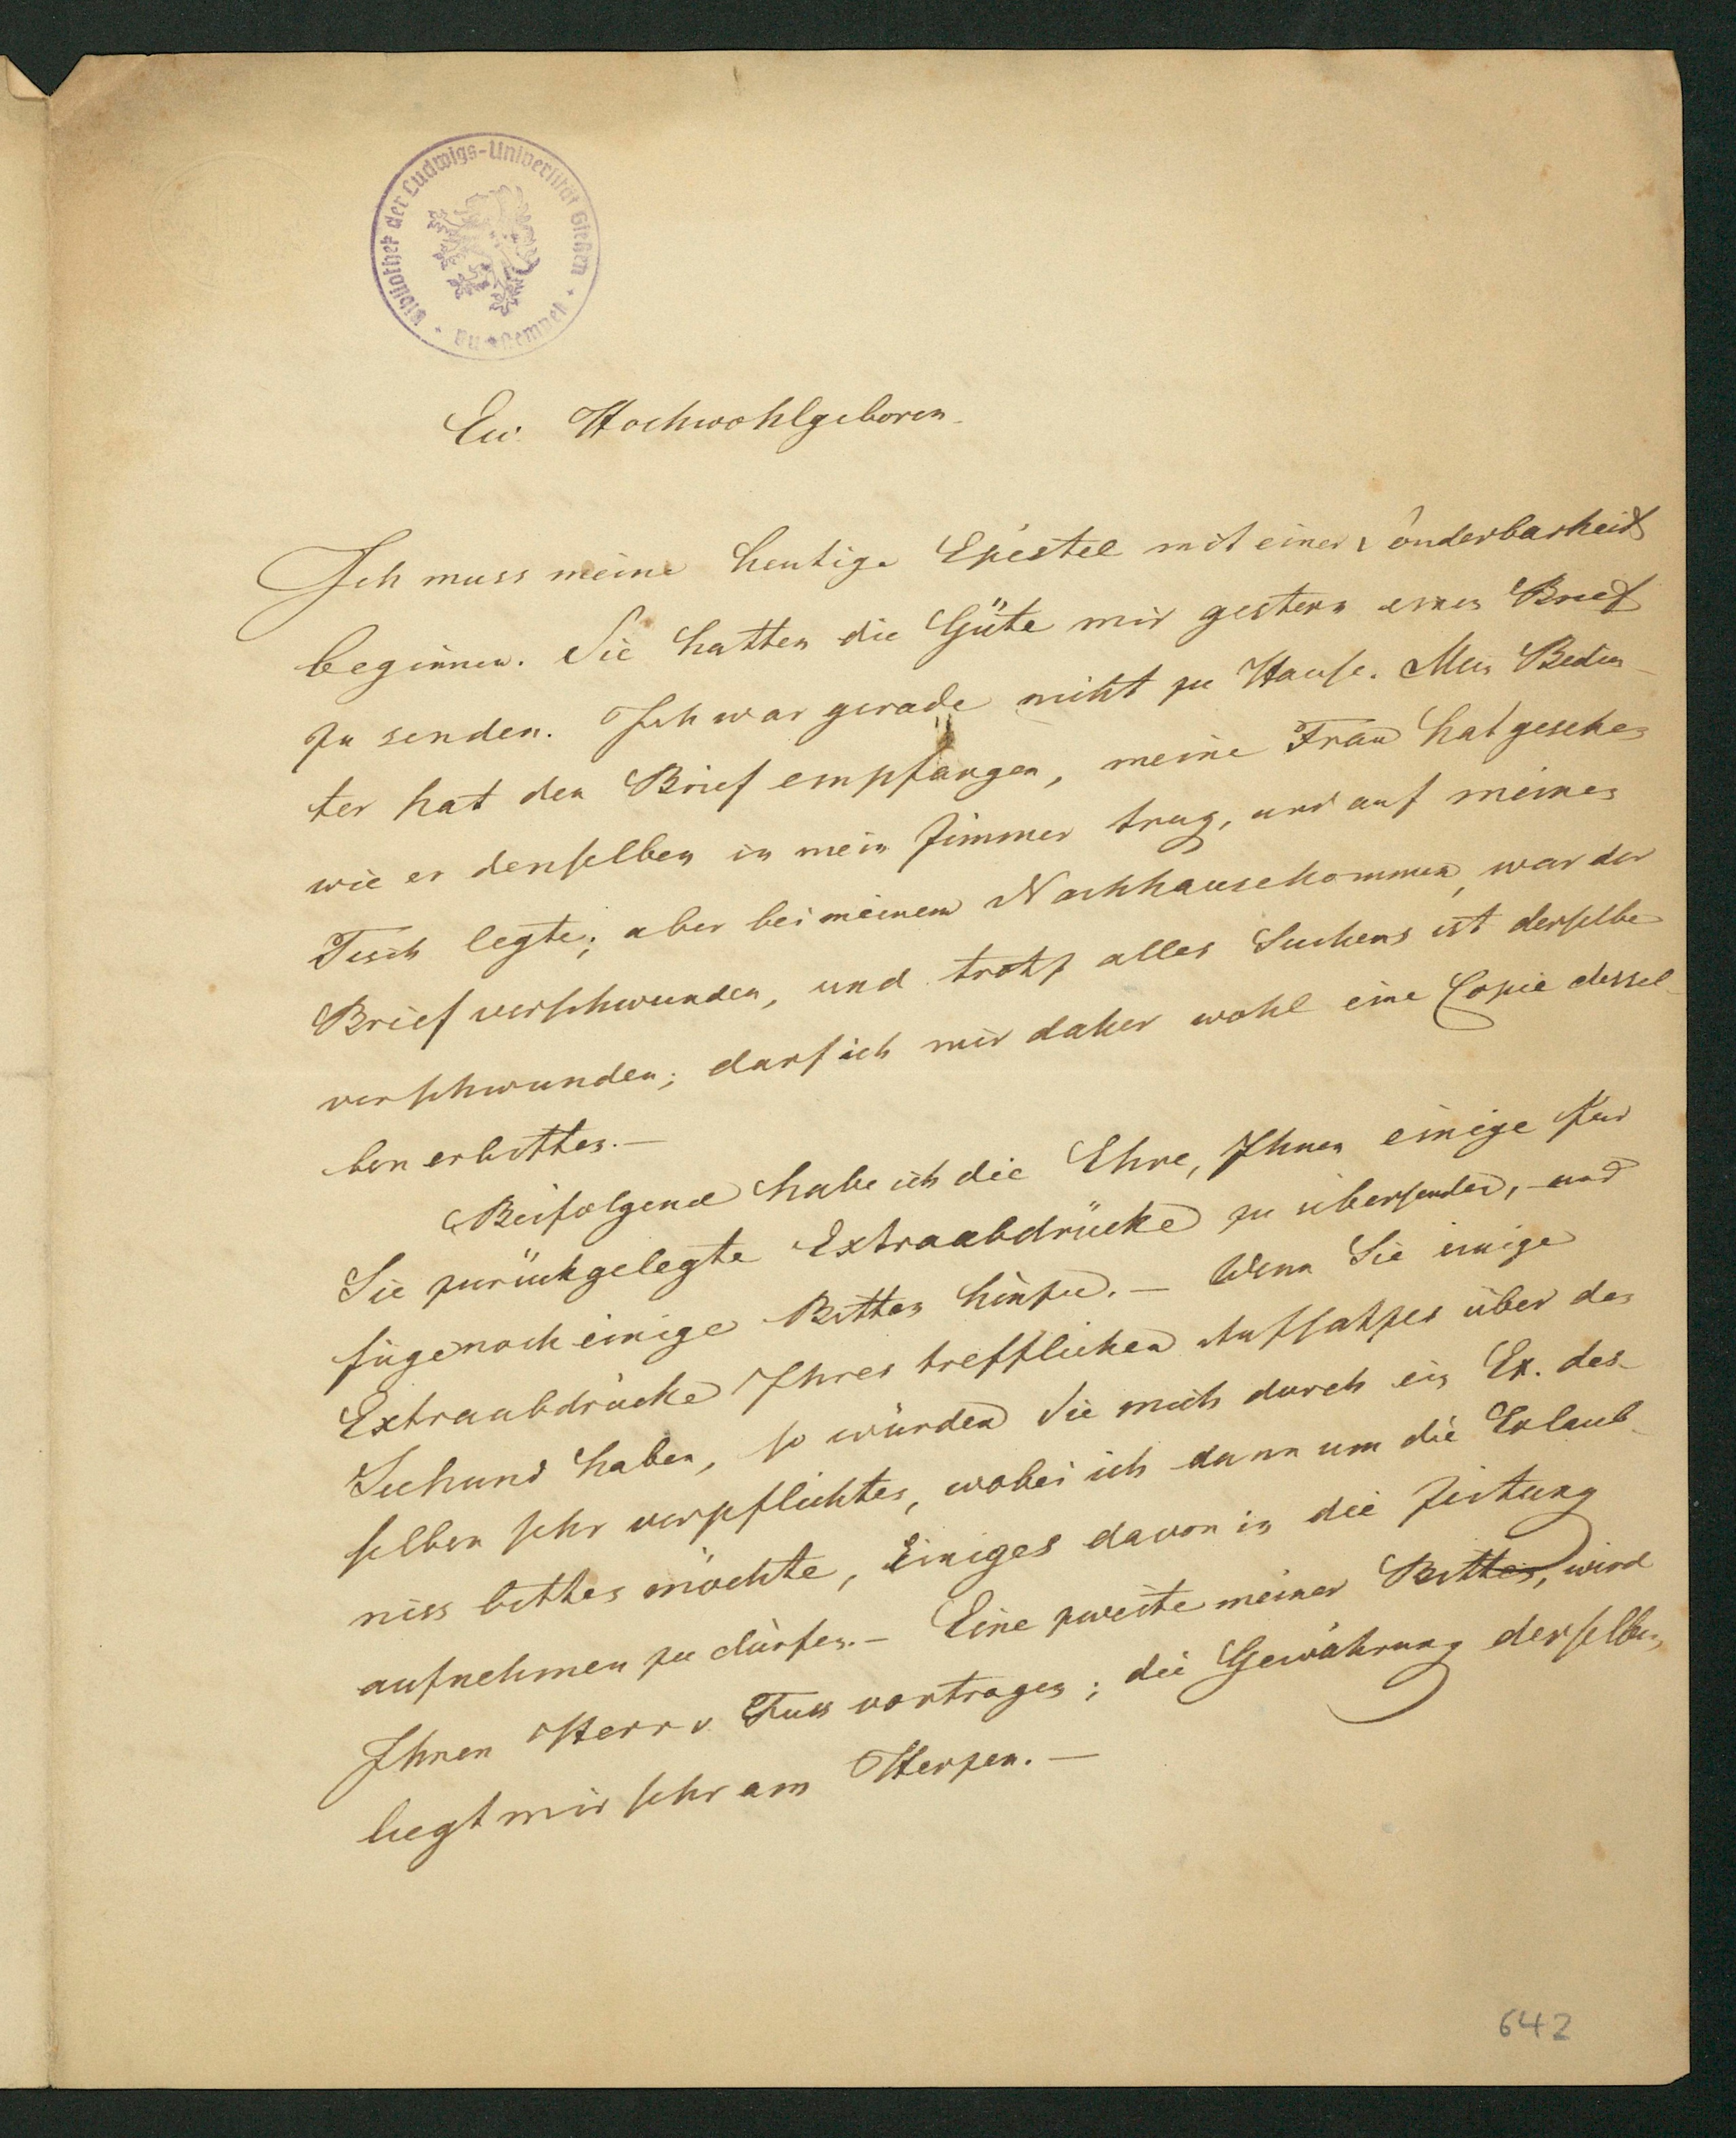 Bibliothek der Ludwigs-Universität Gießen
Ew. Hochwohlgeboren
Ich muss meine heutige Epistel mit einer Sonderbarheit
beginnen. Sie hatten die Güte mir gestern einen Brief
zu senden. Ich war gerade nicht zu Hause. Mein Bedien-
ter hat den Brief empfangen, meine Frau hat gesehen
wie er denselben in mein Zimmer trug, und auf meinen
Tisch legte; aber bei meinem Nachhausekommen, war der
Brief verschwunden, und trotz alles Suchens ist derselbe
verschwunden; darf ich mir daher wohl eine Copie dessel-
ben erbitten. —
Beifolgend habe ich die Ehre, Ihnen einige für
Sie zurückgelegte Extraabdrücke zu übersenden, und
füge noch einige Bitten hinzu. — Wenn Sie einige
Extraabdrücke Ihres trefflichen Aufsatzes über den
Seehund haben, so würden Sie mich durch ein Ex. des-
selben sehr verpflichten, wobei ich dann um die Erlaub-
niss bitten möchte, Einiges davon in die Zeitung
aufnehmen zu dürfen. — Eine zweite meiner Bitten, wird
Ihnen Herr v. Fuss vortragen; die Gewährung derselben,
liegt mir sehr am Herzen. —
642